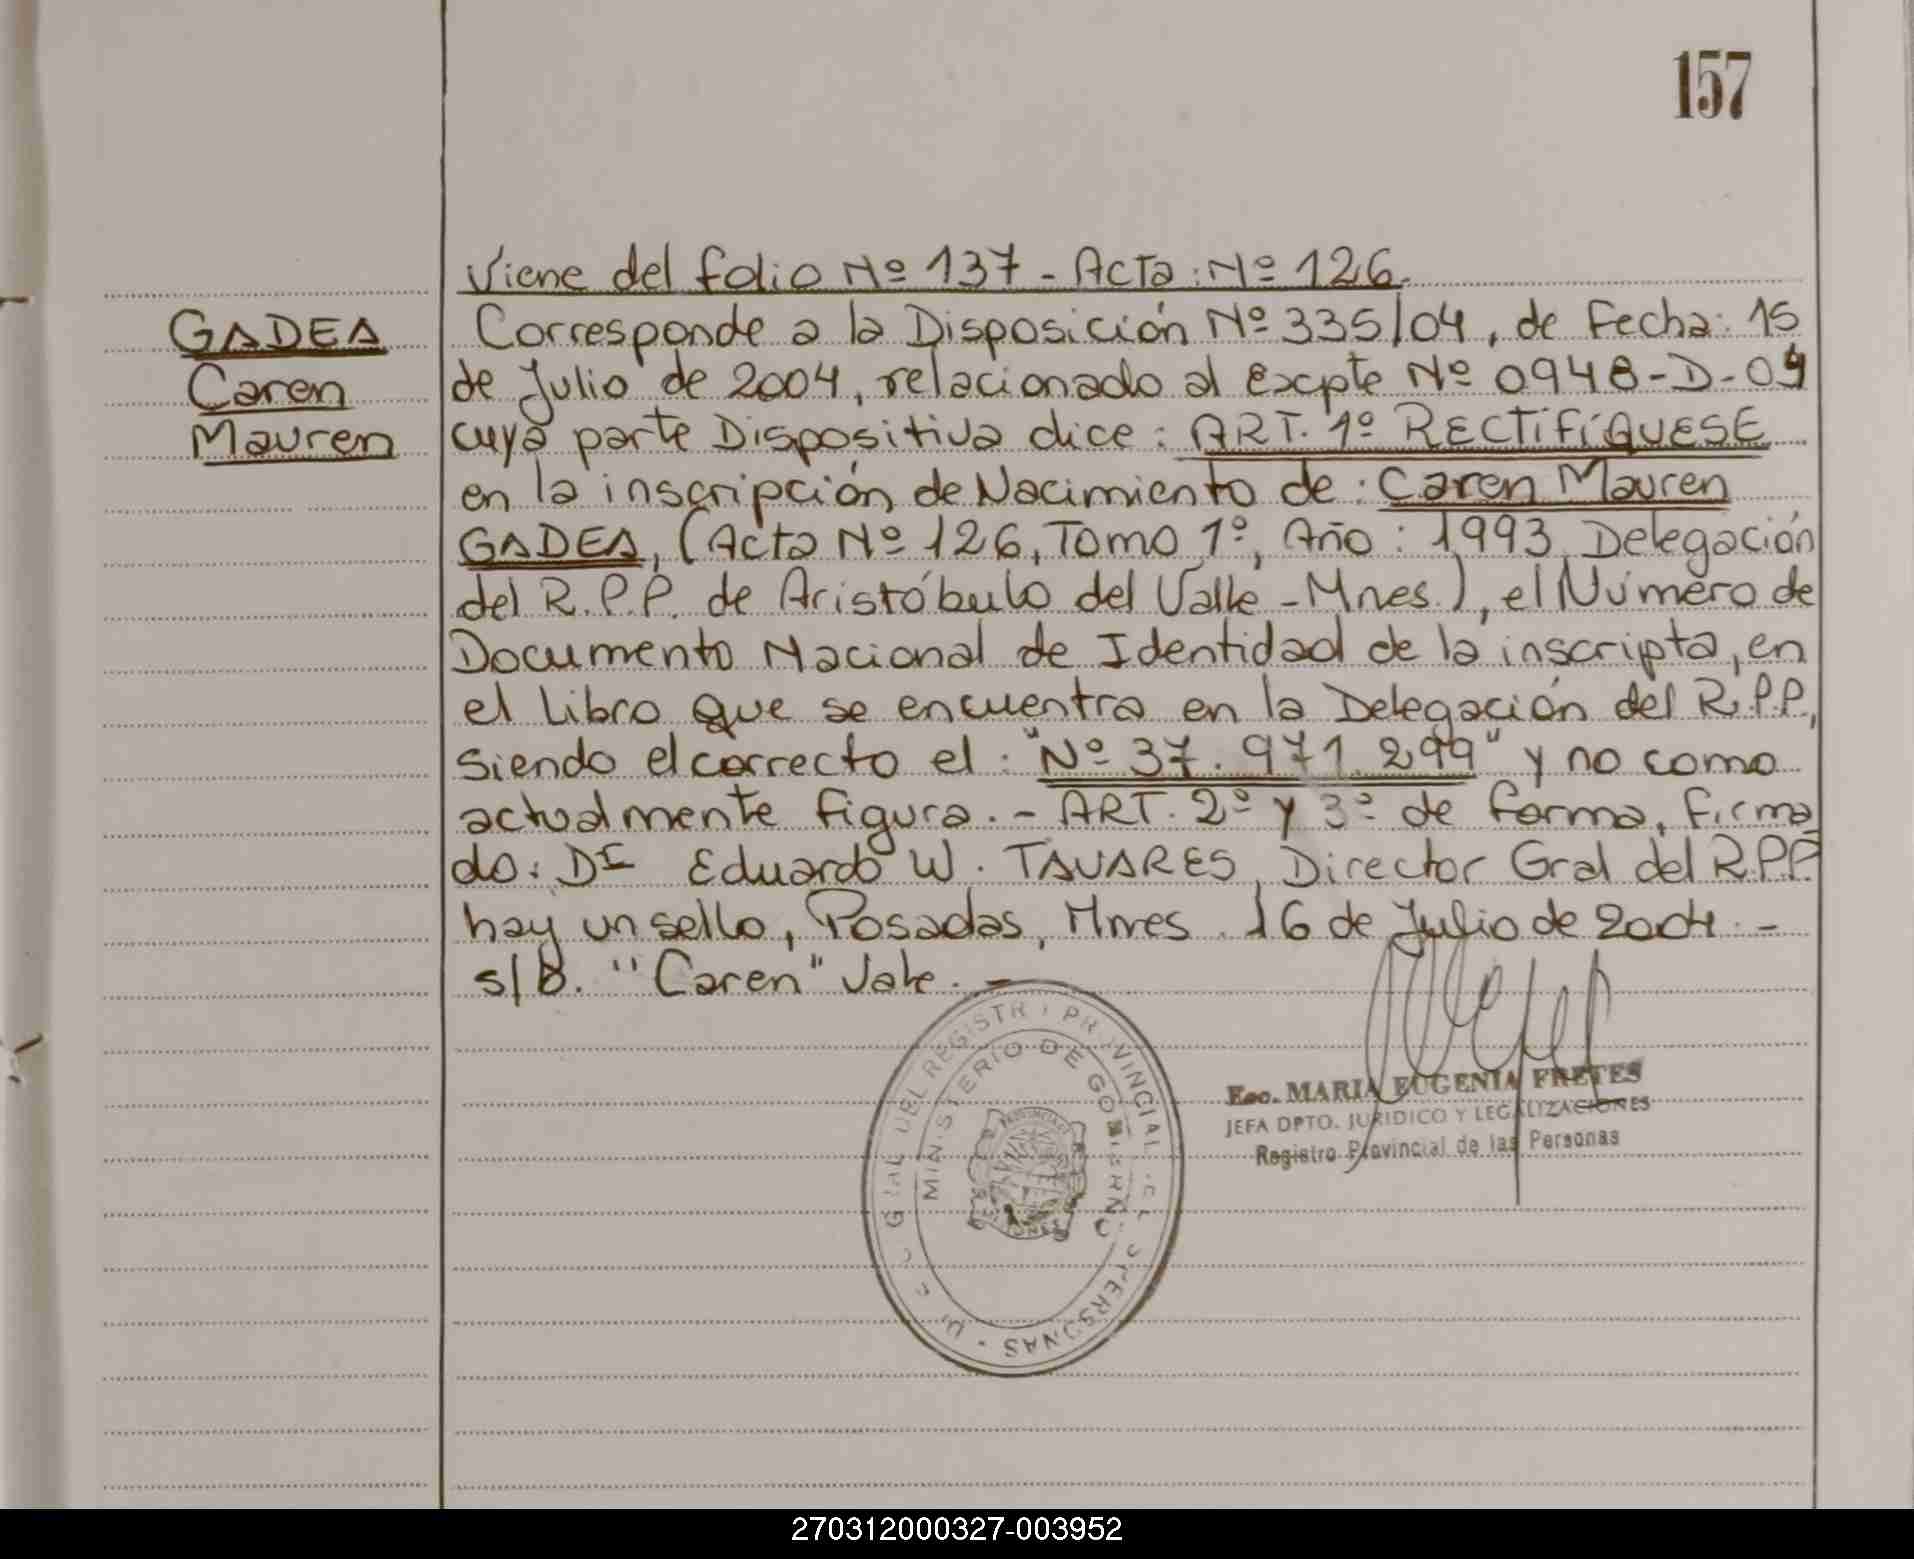 157
Viene del folio Nº 137 - Acta: Nº 126.
GADEA
Caren
Mauren
Corresponde a la Disposición Nº 335/04, de Fecha: 15
de Julio de 2004, relacionado al Excpte Nº 0948-D-04
cuya parte Dispositiva dice: ART. 1º RECTIFÍQUESE
en la inscripción de Nacimiento de: Caren Mauren
GADEA, (Acta Nº 126, Tomo 1º, Año: 1993, Delegación
del R.P.P. de Aristóbulo del Valle - Mnes.), el Número de
Documento Nacional de Identidad de la inscripta, en
el Libro que se encuentra en la Delegación del R.P.P.,
siendo el correcto el: "Nº 37.971.299" y no como
actualmente figura. - ART. 2º y 3º de forma, firma
do: Dr Eduardo W. TAVARES, Director Gral del R.P.P.
hay un sello, Posadas, Mnes. 16 de Julio de 2004. -
s/b. "Caren" Vale. -
GRAL DEL REGISTRO PROVINCIAL PERSONAS
MINISTERIO DE GOBIERNO
Esc. MARIA EUGENIA FRETES
JEFA DPTO. JURIDICO Y LEGALIZACIONES
Registro Provincial de las Personas
270312000327-003952